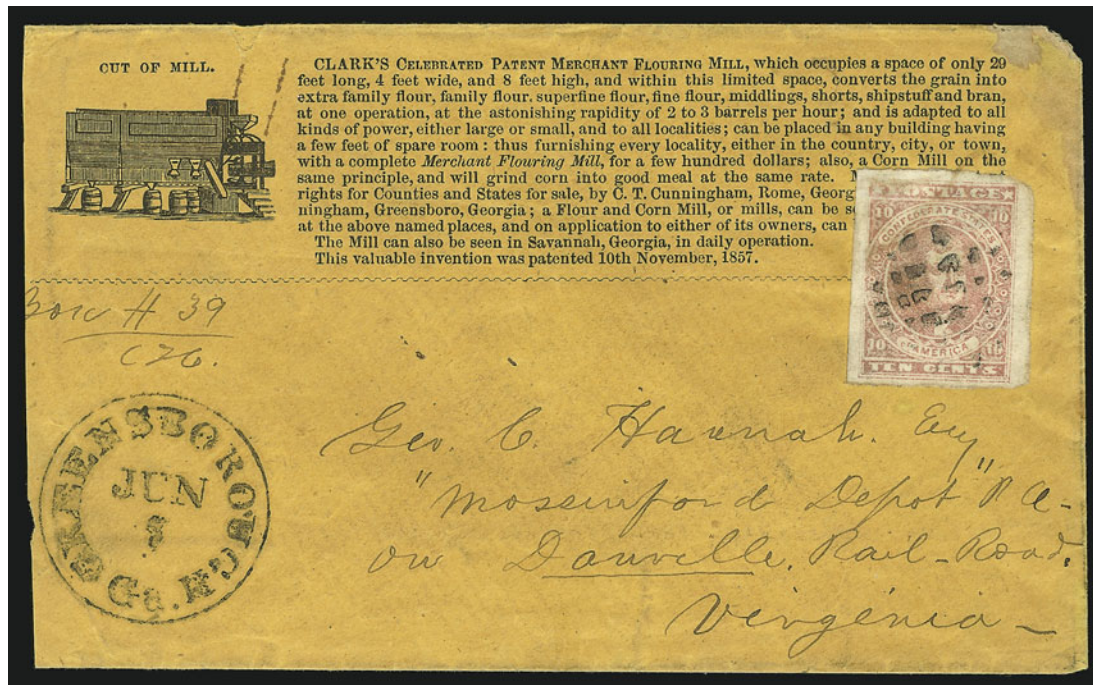 CUT OF MILL.
CLARK'S CELEBRATED PATENT MERCHANT FLOURING MILL, which occupies a space of only 29
feet long, 4 feet wide, and 8 feet high, and within this limited space, converts the grain into
extra family flour, family flour. superfine flour, fine flour, middlings, shorts, shipstuff and bran,
at one operation, at the astonishing rapidity of 2 to 3 barrels per hour; and is adapted to all
kinds of power, either large or small, and to all localities; can be placed in any building having
a few feet of spare room: thus furnishing every locality, either in the country, city, or town,
with a complete Merchant Flouring Mill, for a few hundred dollars; also, a Corn Mill on the
same principle, and will grind corn into good meal at the same rate.
rights for Counties and States for sale, by C. T. Cunningham, Rome,
ningham, Greensboro, Georgia; a Flour and Corn Mill, or mills, can be
at the above named places, and on application to either of its owners, can
The Mill can also be seen in Savannah, Georgia, in daily operation.
This valuable invention was patented 10th November, 1857.
POSTAGE
10 CONFEDERATE STATES 10
OF AMERICA
10 10
TEN CENTS
Box # 39
GREENSBOROUGH
JUN
Ga.
Geo. C. Hannah. Esq
"Mossingford Depot" P.O.
on Danville, Rail-Road.
Virginia